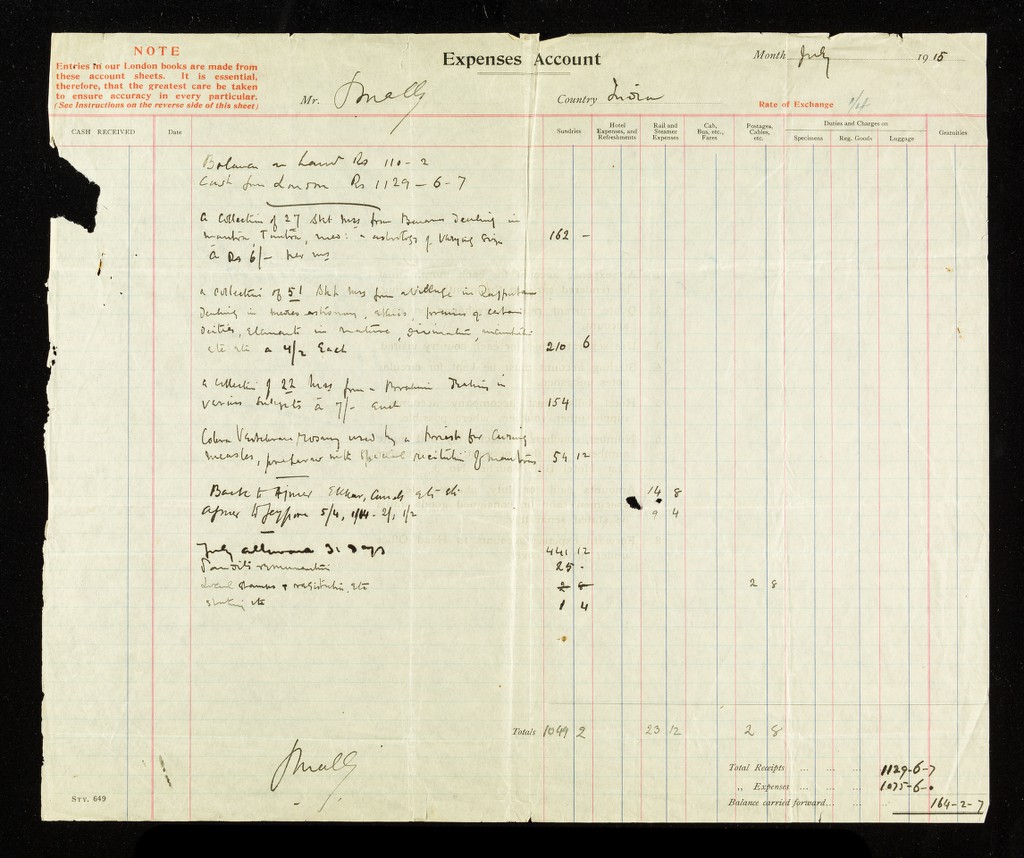 NOTE
Entries in our London books are made from
these account sheets. It is essential,
therefore, that the greatest care be taken
to ensure accuracy in every particular.
(See Instructions on the reverse side of this sheet)
Expenses Account
Month July 1915
Mr.
Country India
Rate of Exchange 1/4
CASH RECEIVED
Date
Sundries
Hotel Expenses, and Refreshments
Rail and Steamer Expenses
Cab, Bus, etc., Fares
Postages, Cables, etc.
Duties and Charges on
Specimens
Reg. Goods
Luggage
Gratuities
Balance in hand Rs 110-2
Cash from London Rs 1129-6-7
a collection of 27 Skt mss from Benares dealing in
mantra, Tantra, med: astrology of varying size
à Rs 6/- per ms 162 -
a collection of 51 Skt mss from a village in Rajputana
dealing in astronomy, ethics, of certain
deities, elements in nature, divination,
etc etc a 4/2 each 210 6
a collection of 22 mss from a Brahmin dealing in
various subjects à 7/- each 154
Cobra Vertebrae rosary used by a priest for curing
measles, with special recitation of mantras 54 12
Back to Ajmer Ekkas, etc etc 14 8
Ajmer to Jeypore 5/4, 2/1, 1/2 9 4
July allowance 31 days 441 12
Pandits remuneration 25 -
Local stamps + registration, etc 2 8 2 8
etc 1 4
Totals 1049 2 23 12 2 8
Total Receipts ... ... ... 1129-6-7
„ Expenses ... ... ... 1075-6-0
Balance carried forward... ... ... 164-2-7
STY. 649